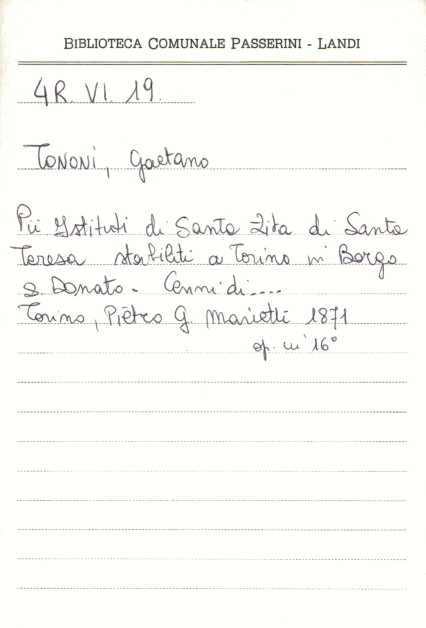 BIBLIOTECA COMUNALE PASSERINI - LANDI
4R. VI. 19.
TONONI, Gaetano
Pii Istituti di Santa Zita di Santa
Teresa stabiliti a Torino in Borgo
S. Donato. Cenni di....
Torino, Pietro G. Marietti 1871
op. in 16°